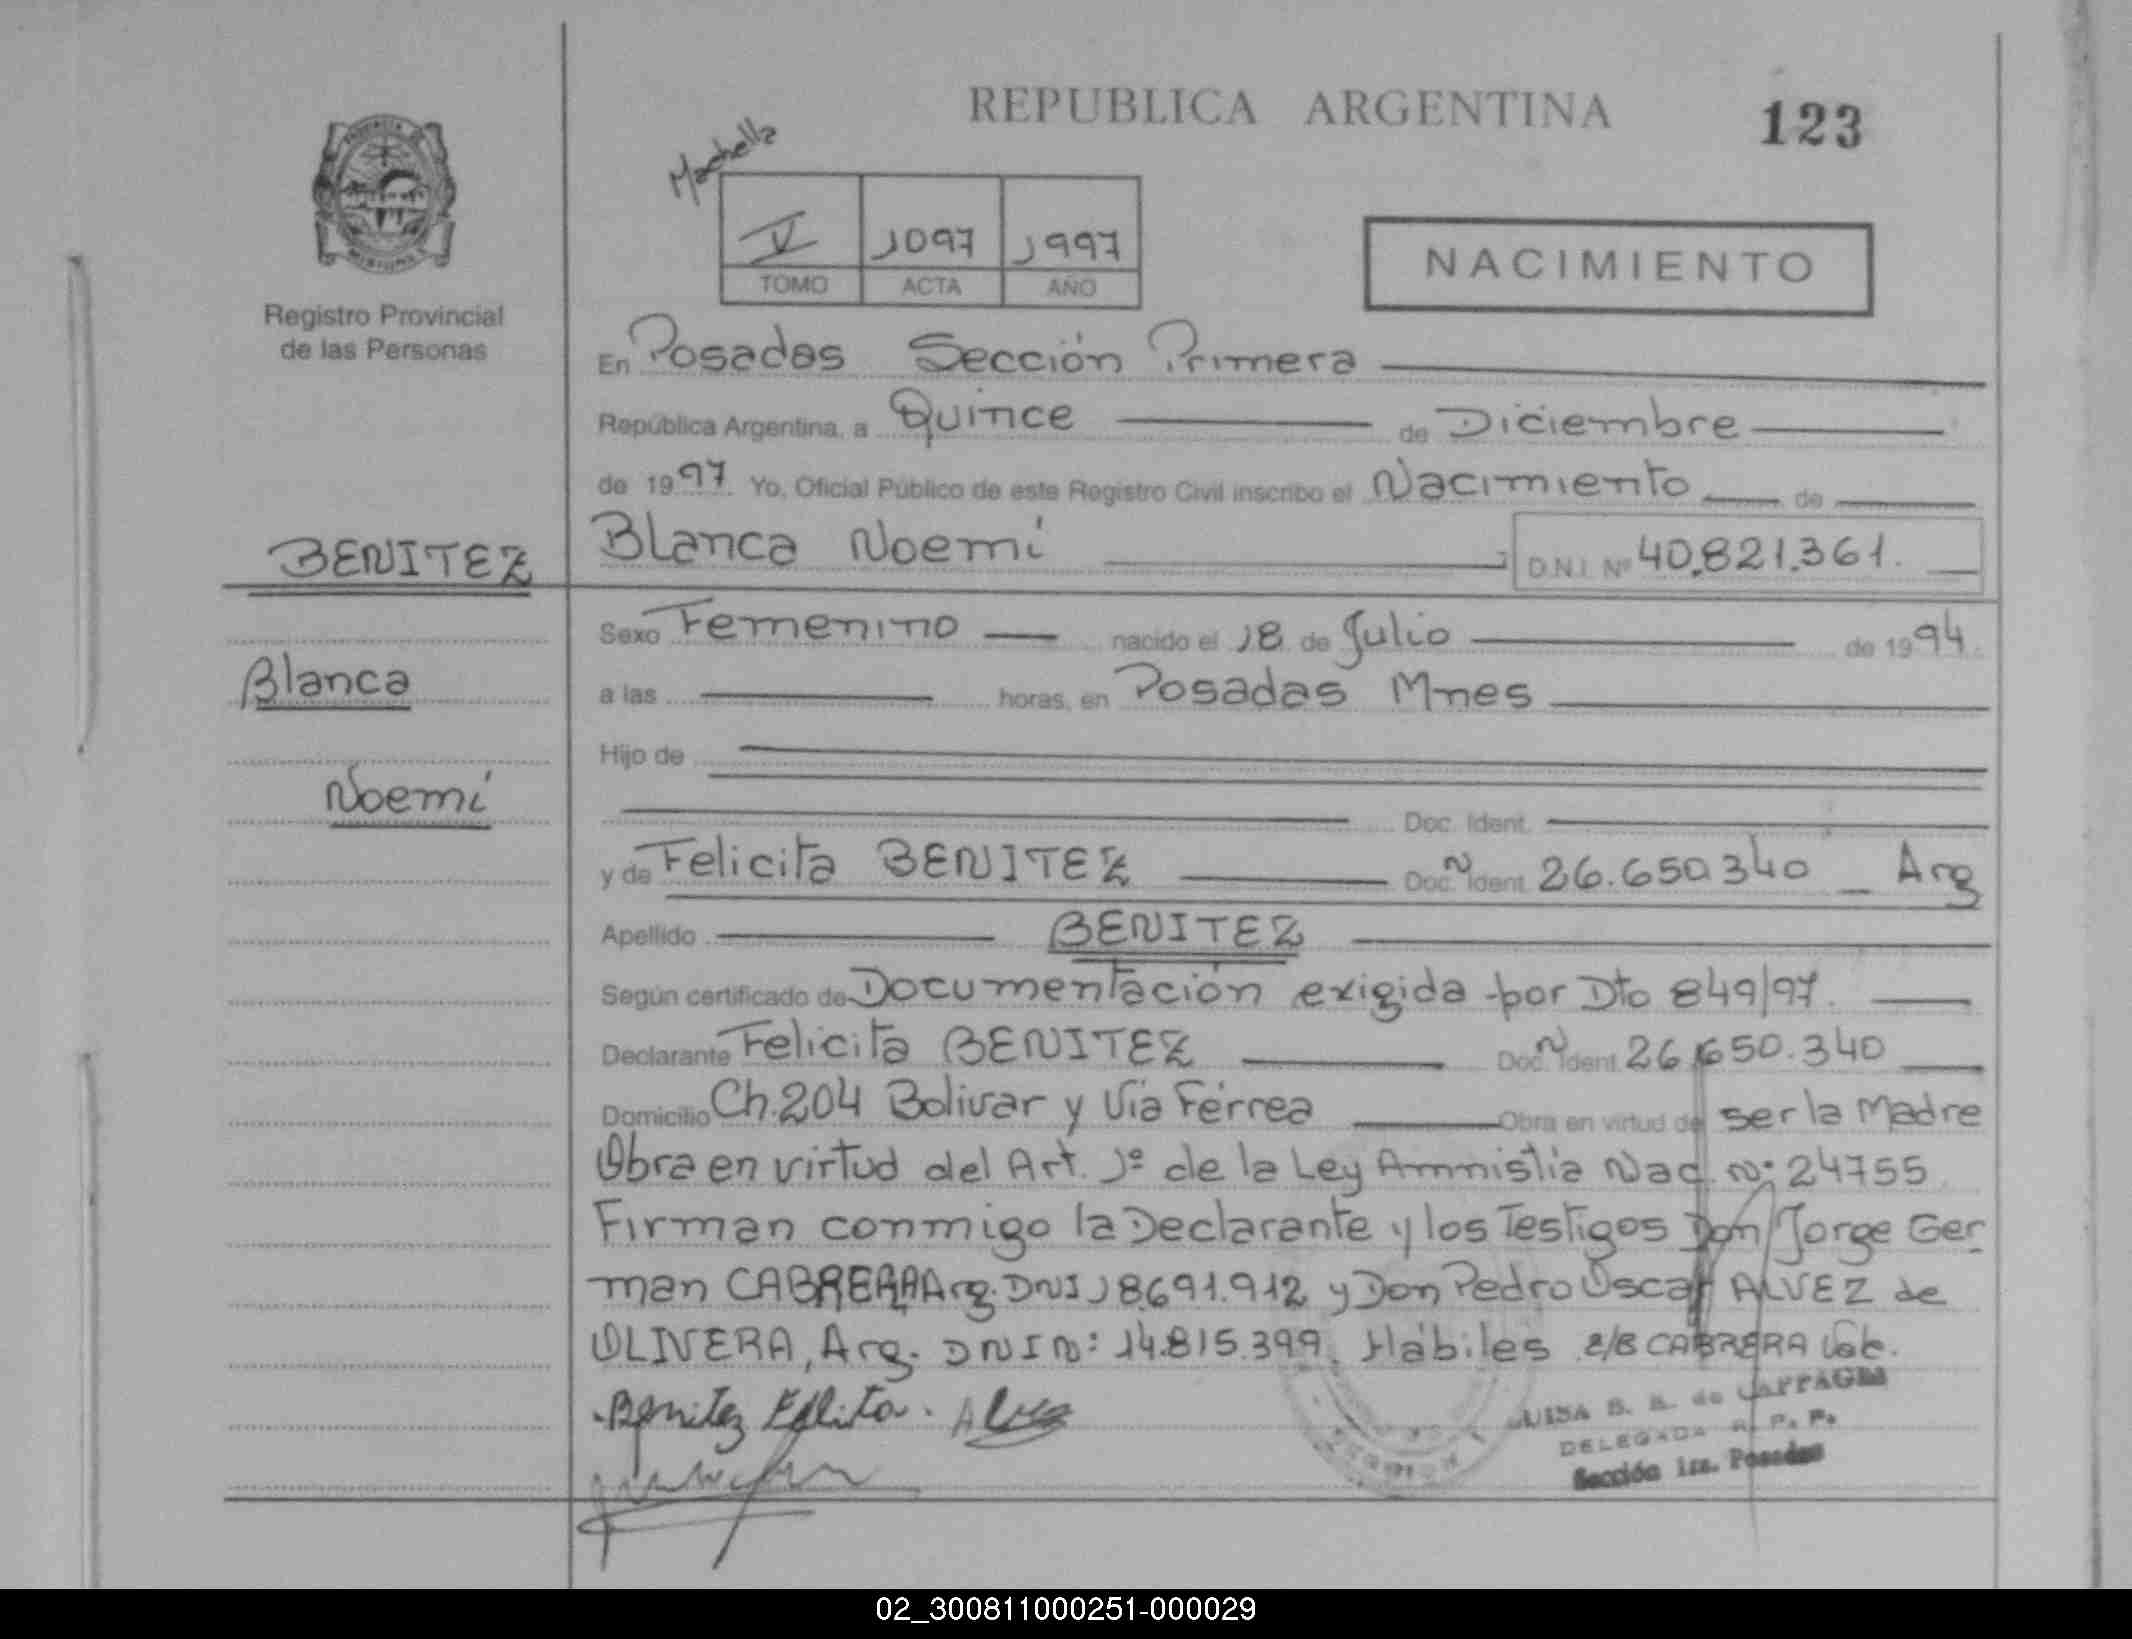 REPUBLICA ARGENTINA
123
V 1097 1997
TOMO ACTA AÑO
NACIMIENTO
Registro Provincial
de las Personas
En Posadas Sección Primera
República Argentina, a Quince de Diciembre
de 1997 Yo, Oficial Público de este Registro Civil inscribo el Nacimiento de
BENITEZ
Blanca Noemí D.N.I. Nº 40.821.361.
Sexo Femenino nacido el 18 de Julio de 1994
Blanca
a las horas, en Posadas Mnes
Hijo de
Noemí
Doc. Ident.
y de Felicita BENITEZ Doc. Ident. 26.650.340 Arg
Apellido BENITEZ
Según certificado de Documentación exigida por Dto 849/97.
Declarante Felicita BENITEZ Doc. Ident. 26.650.340
Domicilio Ch. 204 Bolivar y Vía Férrea Obra en virtud de ser la Madre
Obra en virtud del Art. 1º de la Ley Amnistia Nac. Nº 24755
Firman conmigo la Declarante y los Testigos Don Jorge Ger
man CABRERA Arg. DNI 18.691.912 y Don Pedro Oscar ALVEZ de
OLIVERA, Arg. DNI Nº: 14.815.399. Hábiles E/B CABRERA Vale.
Benitez Felita. Alvez
DELEGADA R. P. P.
Sección 1ra. Posadas
02_300811000251-000029